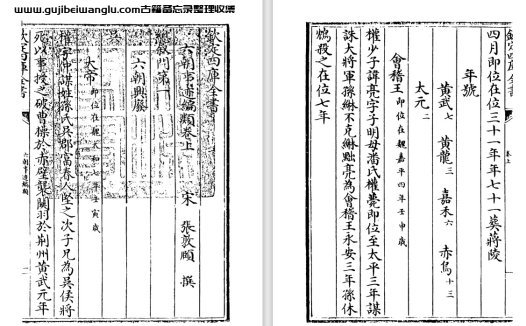 www.gujibeiwanglu.com古籍备忘录整理收集
欽定四庫全書
六朝事迹編類卷上
宋 張敦頤 撰
總敘門第一
六朝興廢
吳
大帝 即位在魏太和七年壬寅歲
權字仲謀姓孫氏吳郡富春人堅之次子兄為吳侯將
死以事授之破曹操於赤壁襲關羽於荆州黄武元年
欽定四庫全書
六朝事迹編類
欽定四庫全書
卷上
四月即位在位三十一年年七十一葬蔣陵
年號
黄武七 黄龍三 嘉禾六 赤烏十三
大元二
會稽王 即位在魏嘉平四年壬申歲
權少子諱亮字子明母潘氏權薨即位至太平三年謀
誅大將軍孫綝不克綝黜亮為會稽王永安三年孫休
鴆殺之在位七年